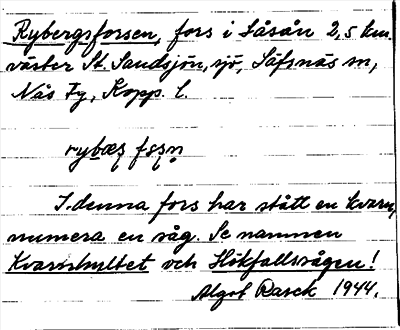 Rybergsforsen, fors i Låsån 2,5 km.
väster St. Sandsjön, sjö, Säfsnäs sn,
Nås Fg, Kopp. l.
I denna fors har stått en kvarn,
numera en såg. Se namnen
Kvarnhyltet och Hökfallssågen!
Algot Rasck 1944.